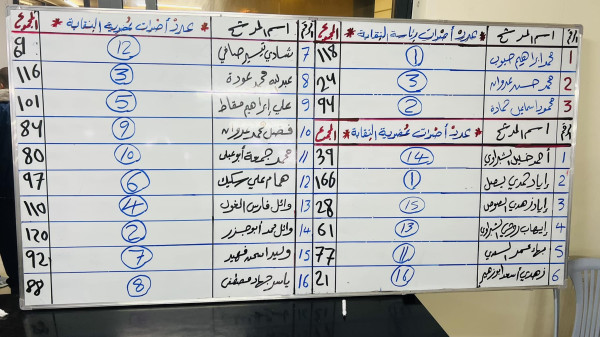 الرقم اسم المرشح * عدد أصوات رئاسة النقابة * المجموع
1 محمد ابراهيم 1 118
2 محمد حسن عدوان 3 24
3 محمود اسماعيل حمادة 2 94
الرقم اسم المرشح * عدد أصوات عضوية النقابة * المجموع
1 أحمد حسين الشبراوي 14 39
2 إياد حمدي فيصل 1 166
3 إياد زهدي 15 28
4 إيهاب 13 61
5 جهاد عمر السعدي 11 77
6 زهدي أسعد ابو رحيم 16 21
الرقم اسم المرشح * عدد أصوات عضوية النقابة * المجموع
7 شادي تيسير صالحي 12
8 عبدالله محمد عودة 3 116
9 علي ابراهيم مقاط 5 101
10 فضل محمد عدوان 9 84
11 محمد جمعة أبو عيش 10 80
12 همام علي سكيك 6 97
13 وائل فارس الغرة 4 110
14 وائل محمد أبو جزر 2 120
15 وليد اسحق فهيد 7 92
16 ياسر جهاد مصطفى 8 88